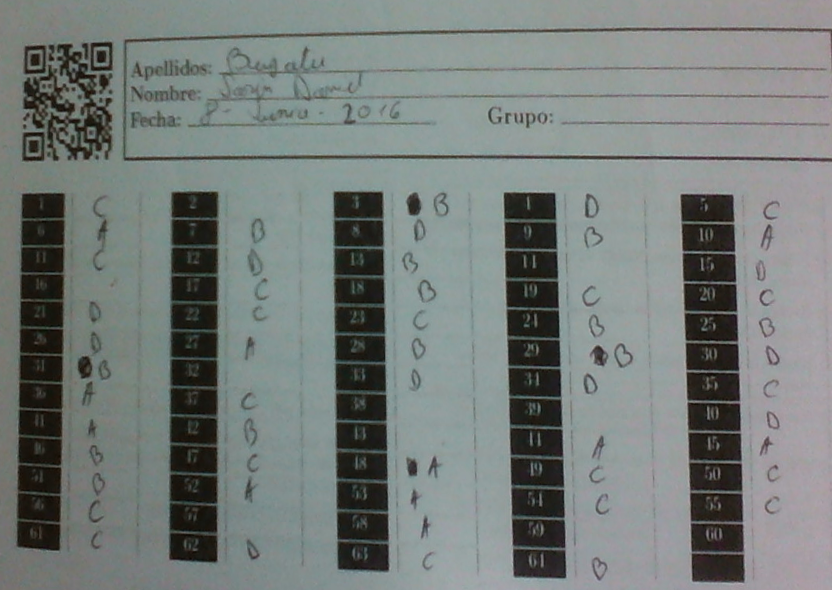 Apellidos:
Nombre: Daniel
Fecha: 8 - Junio - 2016 Grupo:
1 C 2 3 B 4 D 5 C
6 A 7 B 8 D 9 B 10 A
11 C 12 D 13 B 14 15 D
16 17 C 18 B 19 C 20 C
21 D 22 C 23 C 24 B 25 B
26 D 27 A 28 B 29 B 30 D
31 B 32 33 D 34 D 35 C
36 A 37 C 38 39 40 D
41 A 42 B 43 44 A 45 A
46 B 47 C 48 A 49 C 50 C
51 B 52 A 53 A 54 C 55 C
56 C 57 58 A 59 60
61 C 62 D 63 C 64 B